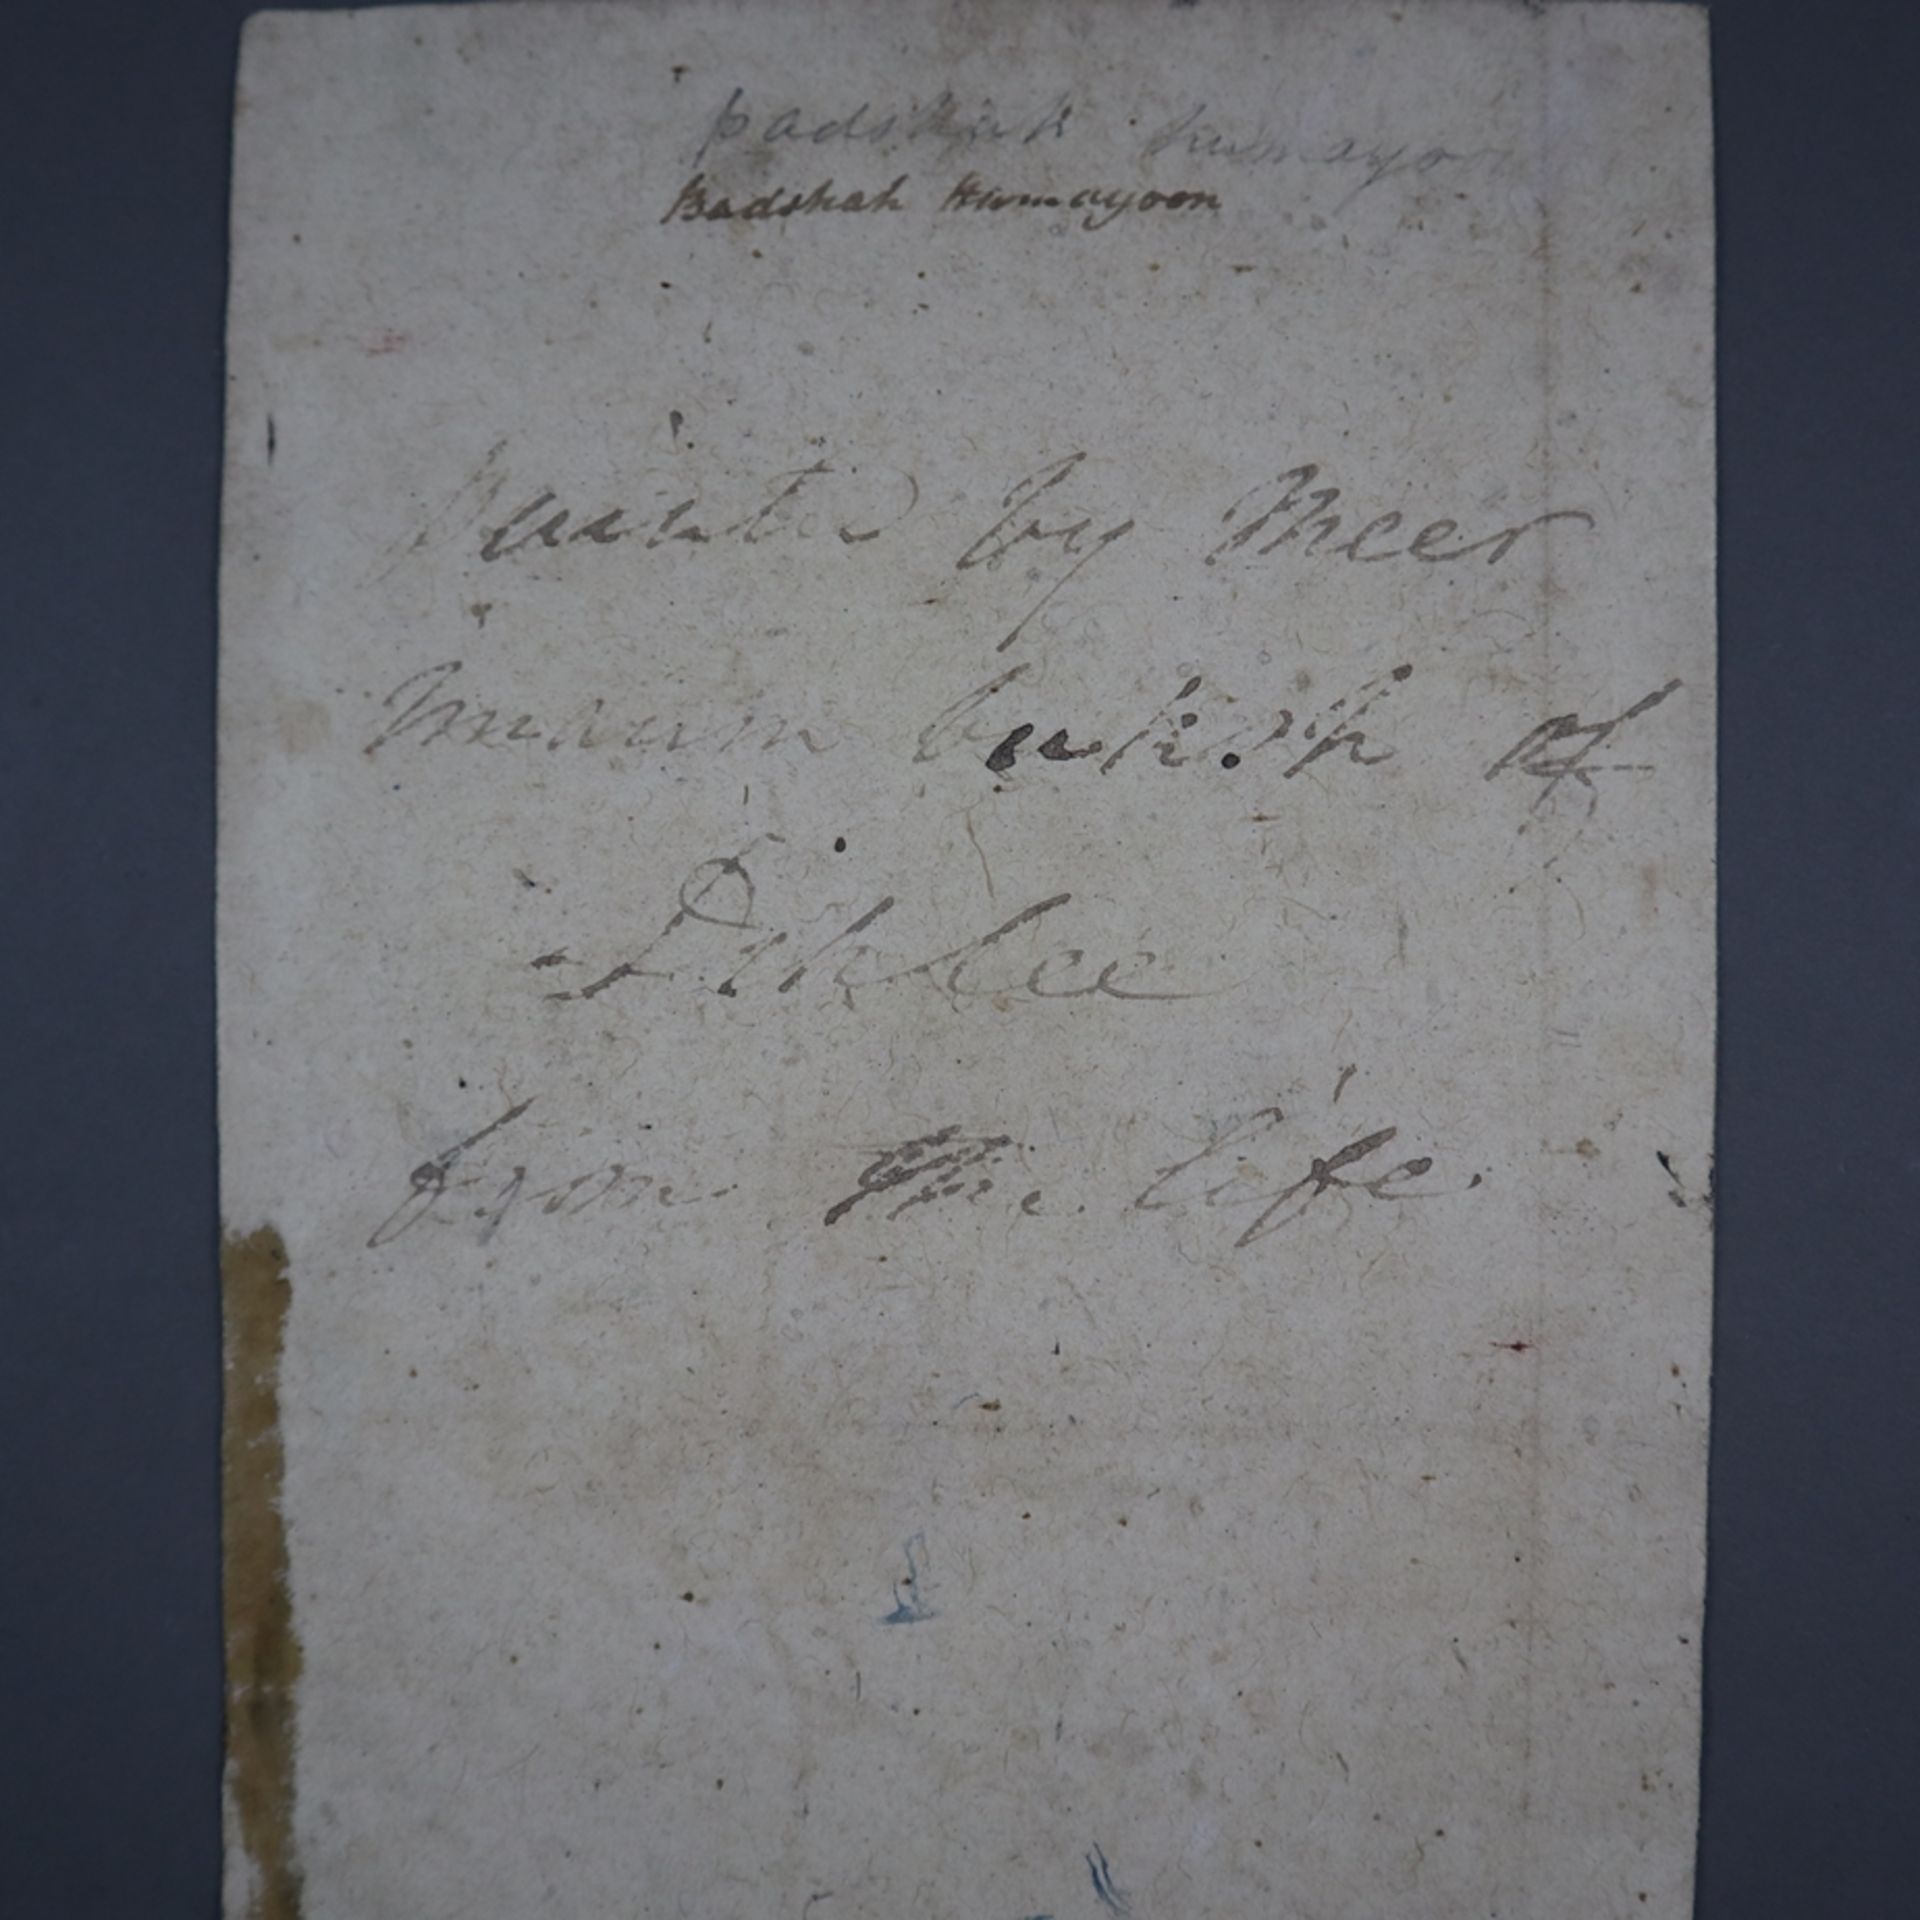 padshah humayoon
Badshah Humayoon
Painted by Meer
Imaum buksh of
Dihlee
from the life.